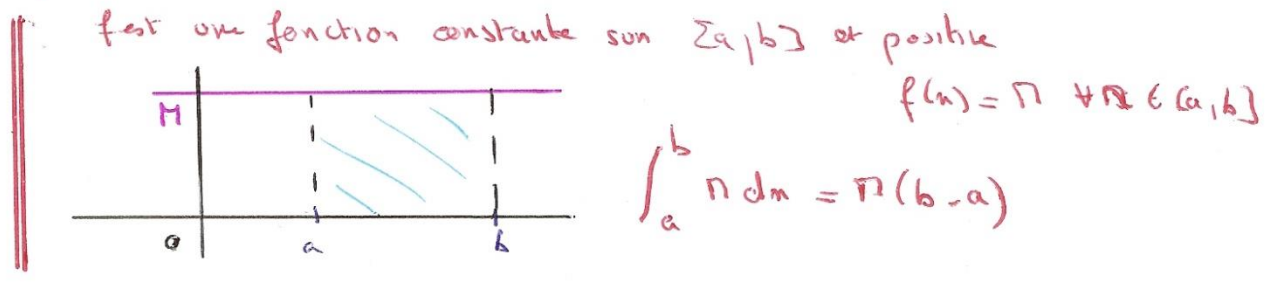 f est une fonction constante sur [a,b] et positive
f(x) = M ∀x ∈ [a,b]
M
∫_a^b M dx = M(b-a)
O a b